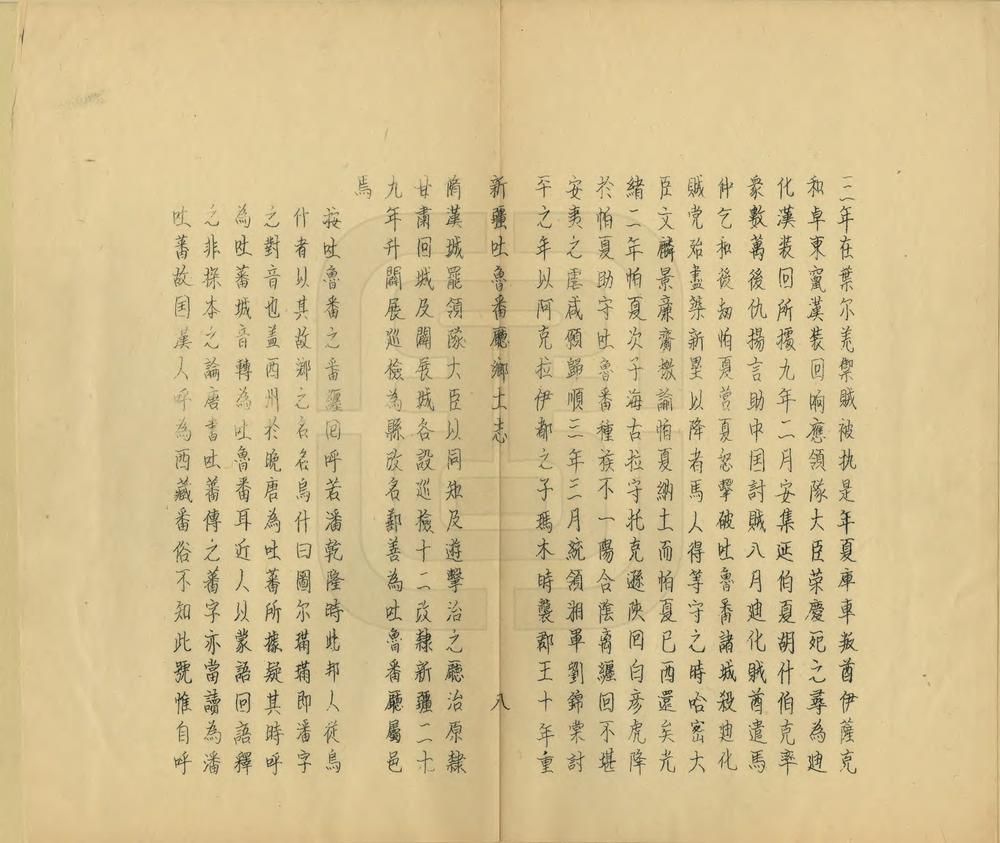 三年在葉尔羌禦賊被执是年夏庫車叛酋伊薩克
和卓東竄漢装回响應領隊大臣荣慶死之尋為迪
化漢装回所擾九年二月安集延伯夏胡什伯克率
眾數萬後仇揚言助中囯討賊八月迪化賊酋遣馬
仲乞和後劫怕夏营夏怒擊破吐魯番諸城殺迪化
賊党殆盡築新壘以降者馬人得等守之時哈密大
臣文麟景亷齋檄諭怕夏納土而怕夏已西還矣光
緒二年怕夏次子海古拉守托克遜陝回白彥虎降
於怕夏助守吐魯番種族不一陽合陰离纏回不堪
安夷之虐咸願歸順三年三月統領湘軍劉錦棠討
平之年以阿克拉伊都之子瑪木時襲郡王十年重
新疆吐魯番廳鄉土志 八
脩漢城罷領隊大臣以同知及遊擊治之廳治原隸
甘肅回城及闢展城各設巡檢十二改隸新疆二十
九年升闢展巡檢為縣改名鄯善為吐魯番廳屬邑
焉
按吐魯番之番纏回呼若潘乾隆時此邦人從烏
什者以其故鄉之名名烏什曰圖尔璊璊即潘字
之對音也盖西州於晚唐為吐蕃所據疑其時呼
為吐蕃城音轉為吐魯番耳近人以蒙語回語釋
之非探本之論唐書吐蕃傳之蕃字亦當讀為潘
吐蕃故囯漢人呼為西藏番俗不知此號惟自呼